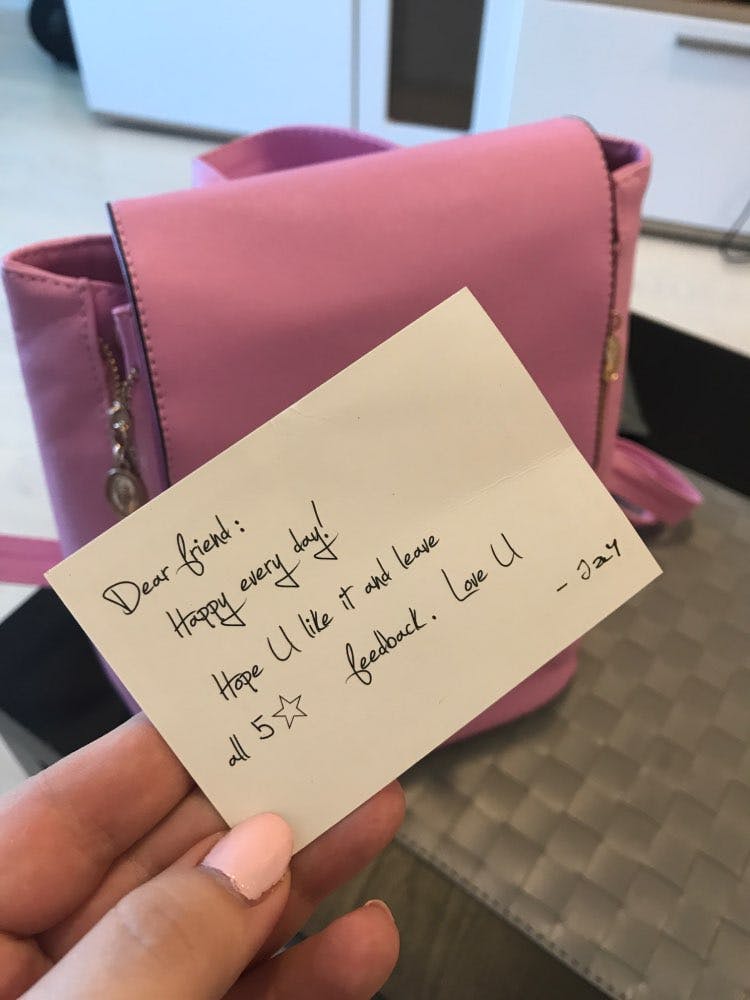 Dear friend:
Happy every day!
Hope U like it and leave
all 5☆ feedback. Love U
- Jay